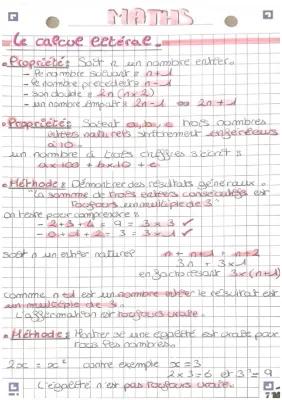 MATHS
Le calcul littéral.
• Propriété: Soit n un nombre entier.
- le nombre suivant = n+1
- le nombre précédent = n-1
- son double = 2n (n×2)
- un nombre impair = 2n-1 ou 2n+1
• Propriété: Soient a, b, c trois nombres
entiers naturels strictement inférieurs
à 10.
un nombre à trois chiffres s'écrit :
a×100 + b×10 + c
• Méthode: Démontrer des résultats généraux.
"La somme de trois entiers consécutifs est
toujours un multiple de 3"
On teste pour comprendre :
- 2+3+4 = 9 = 3×3 ✓
- 0+1+2 = 3 = 3×1 ✓
soit n un entier naturel n + n+1 + n+2
3n + 3×1
en factorisant 3×(n+1)
comme n+1 est un nombre entier le résultat est
un multiple de 3.
L'affirmation est toujours vraie.
• Méthode: Montrer si une égalité est vraie pour
tous les nombres.
2x = x² contre exemple x=3
2×3=6 et 3²=9
L'égalité n'est pas toujours vraie.